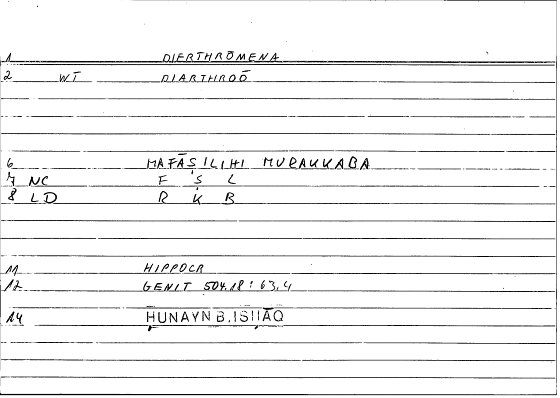 1 DIERTHRŌMENA
2 WT DIARTHROŌ
6 MAFĀṢILIHI MURAKKABA
7 NC F Ṣ L
8 LD R K B
11 HIPPOCR
12 GENIT 504.18 : 63,4
14 ḤUNAYN B. ISḤĀQ